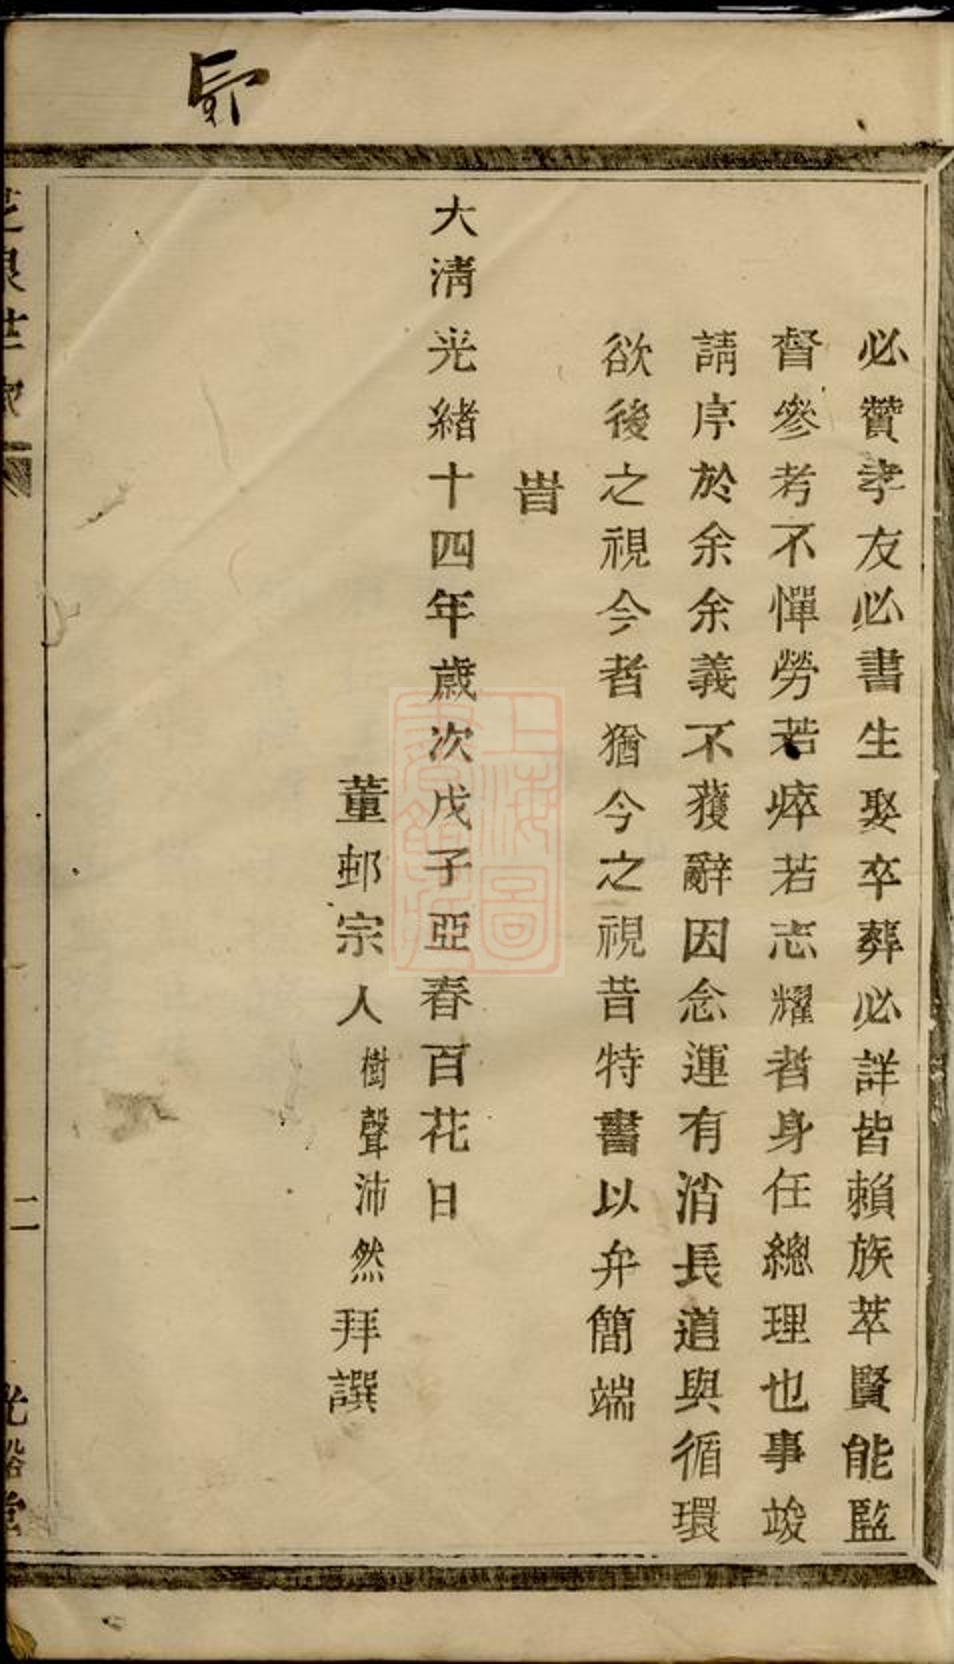 必贊孝友必書生娶卒葬必詳皆賴族萃賢能監
督參考不憚勞若瘁若志耀者身任總理也事竣
請序於余余義不獲辭因念運有消長道與循環
欲後之視今者猶今之視昔特書以弁簡端
旹
大清光緒十四年歲次戊子亞春百花日
董邨宗人樹聲沛然拜譔
二
上海圖